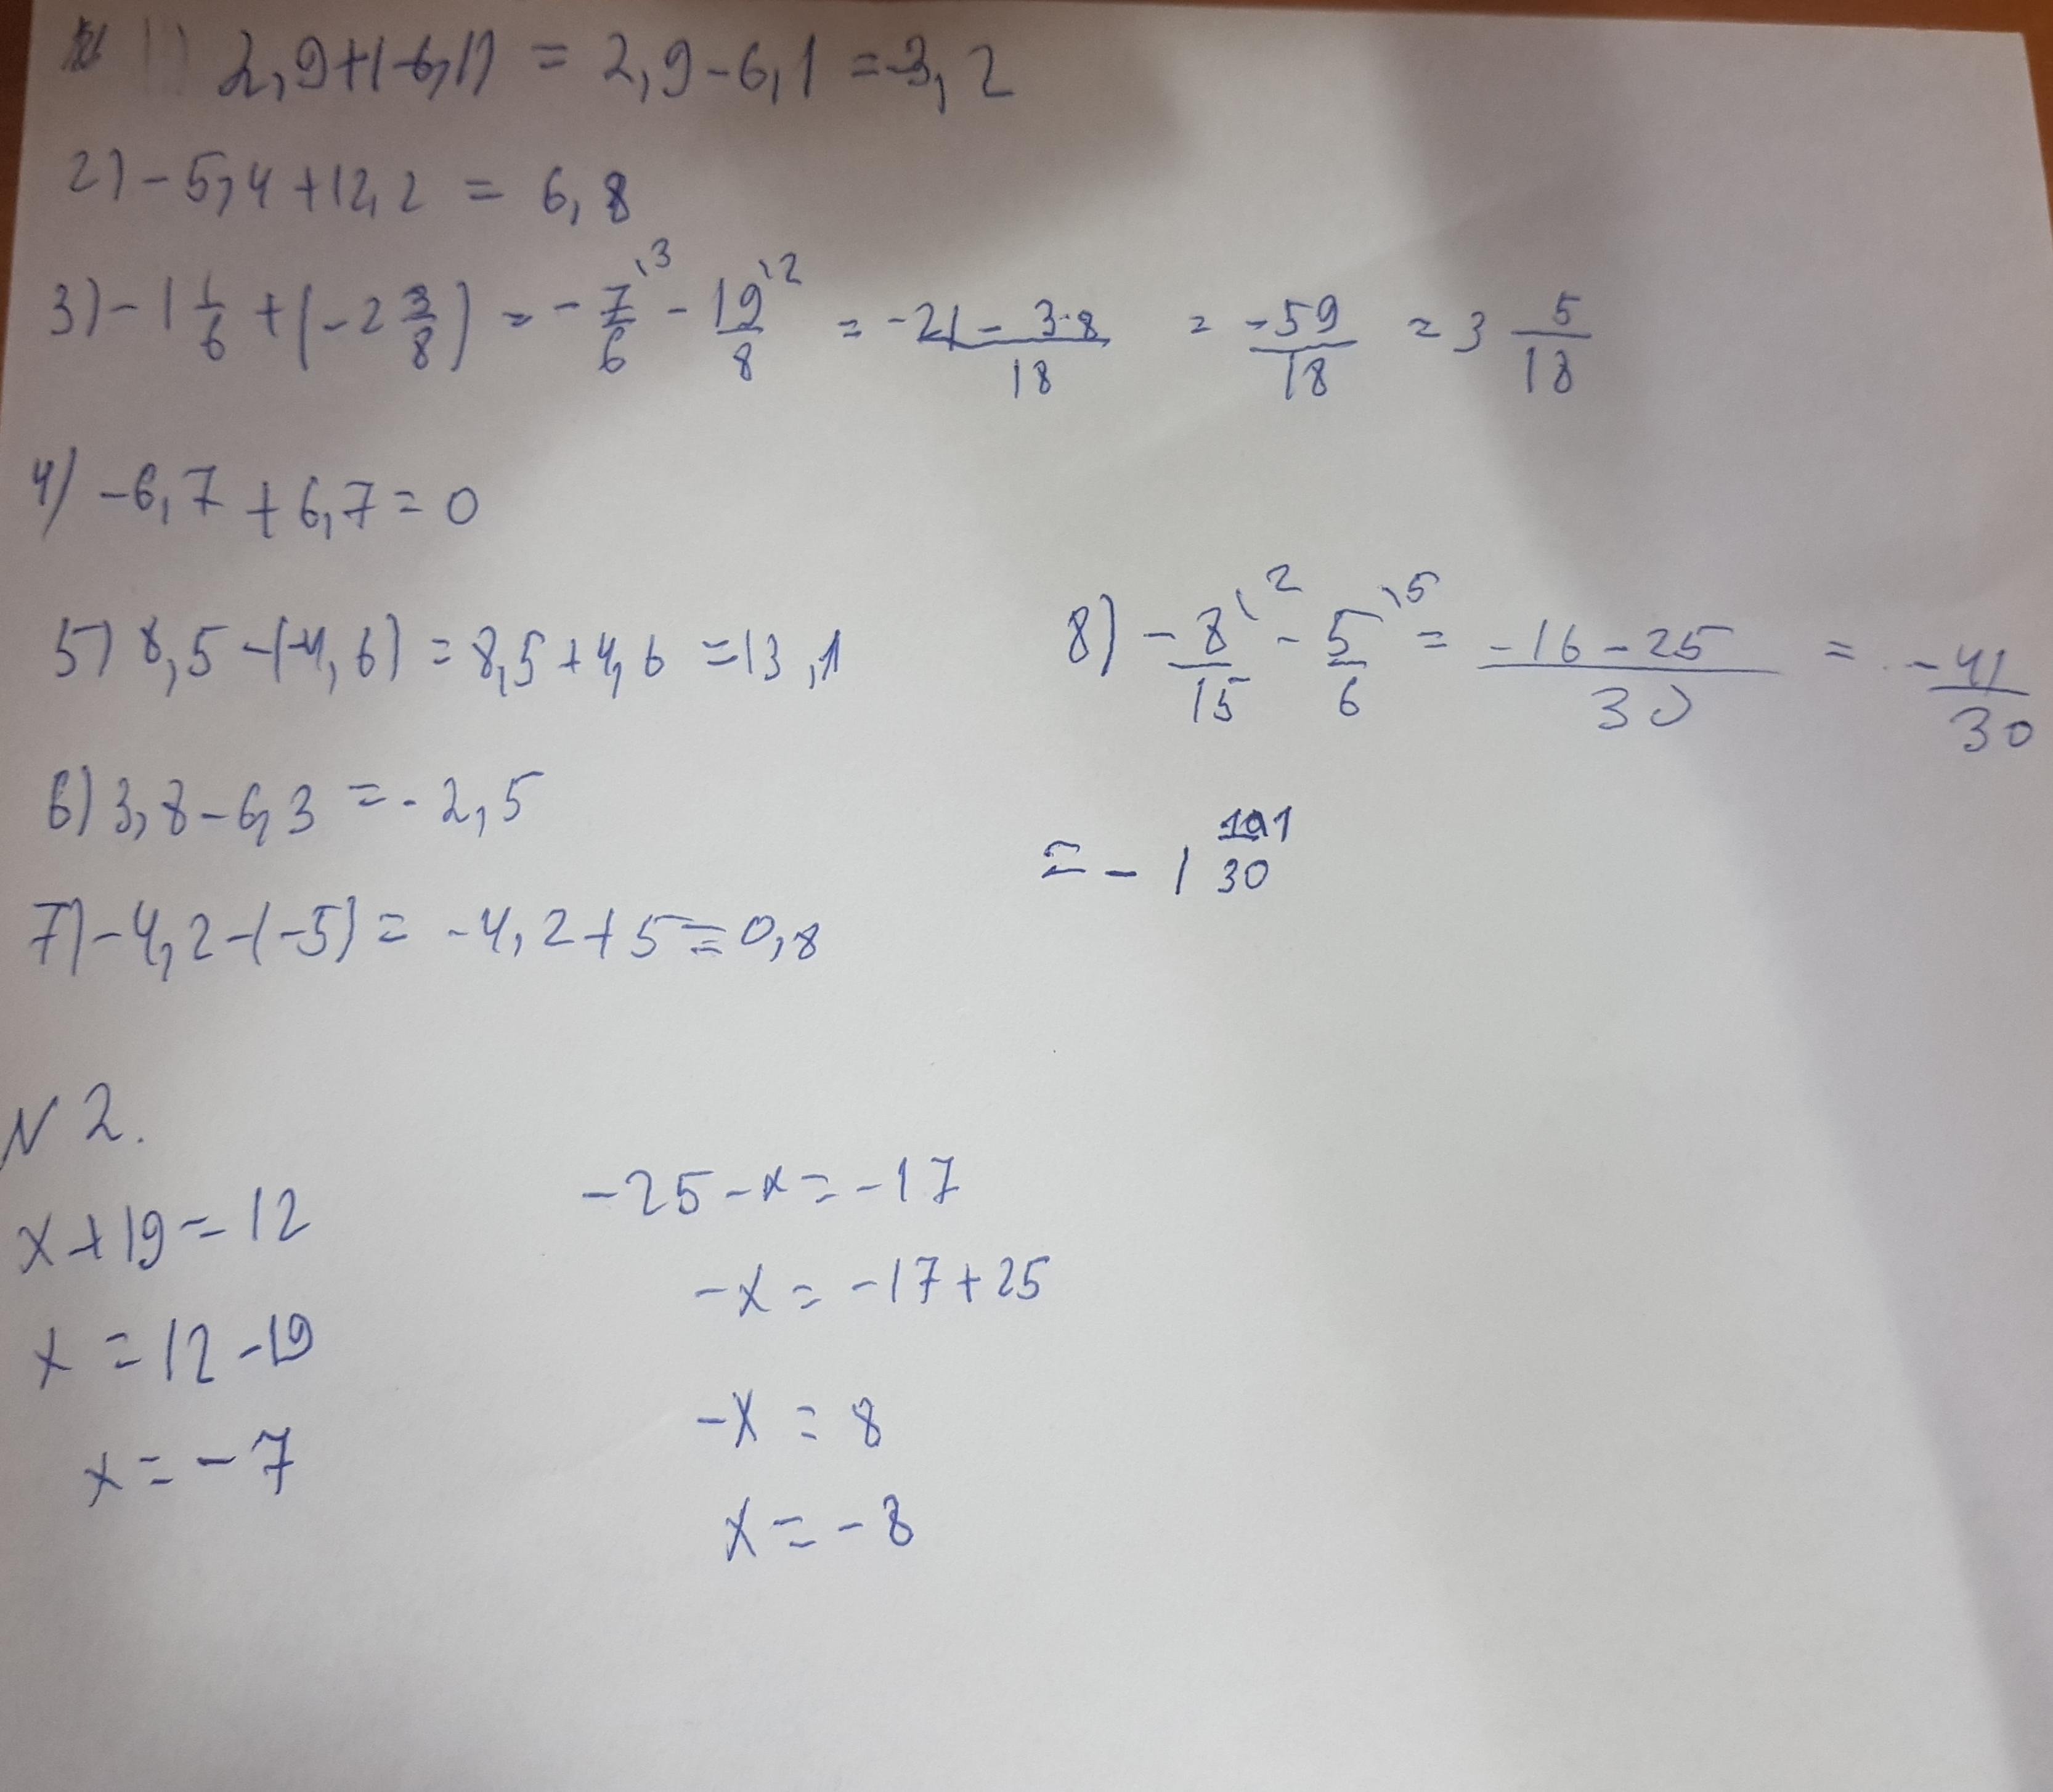 1) 2,9+(-6,1) = 2,9-6,1 = -3,2
2) -5,4+12,2 = 6,8
3) -1 1/6 + (-2 3/8) = -7/6 \3 - 19/8 \2 = -21-38/18 = -59/18 = 3 5/18
4) -6,7+6,7=0
5) 8,5-(-4,6) = 8,5+4,6 = 13,1
6) 3,8-6,3 = -2,5
7) -4,2-(-5) = -4,2+5 = 0,8
8) -8/15 \2 - 5/6 \5 = -16-25/30 = -41/30
= -1 /30
N 2.
x+19=12
x=12-19
x=-7
-25-x=-17
-x=-17+25
-x=8
x=-8